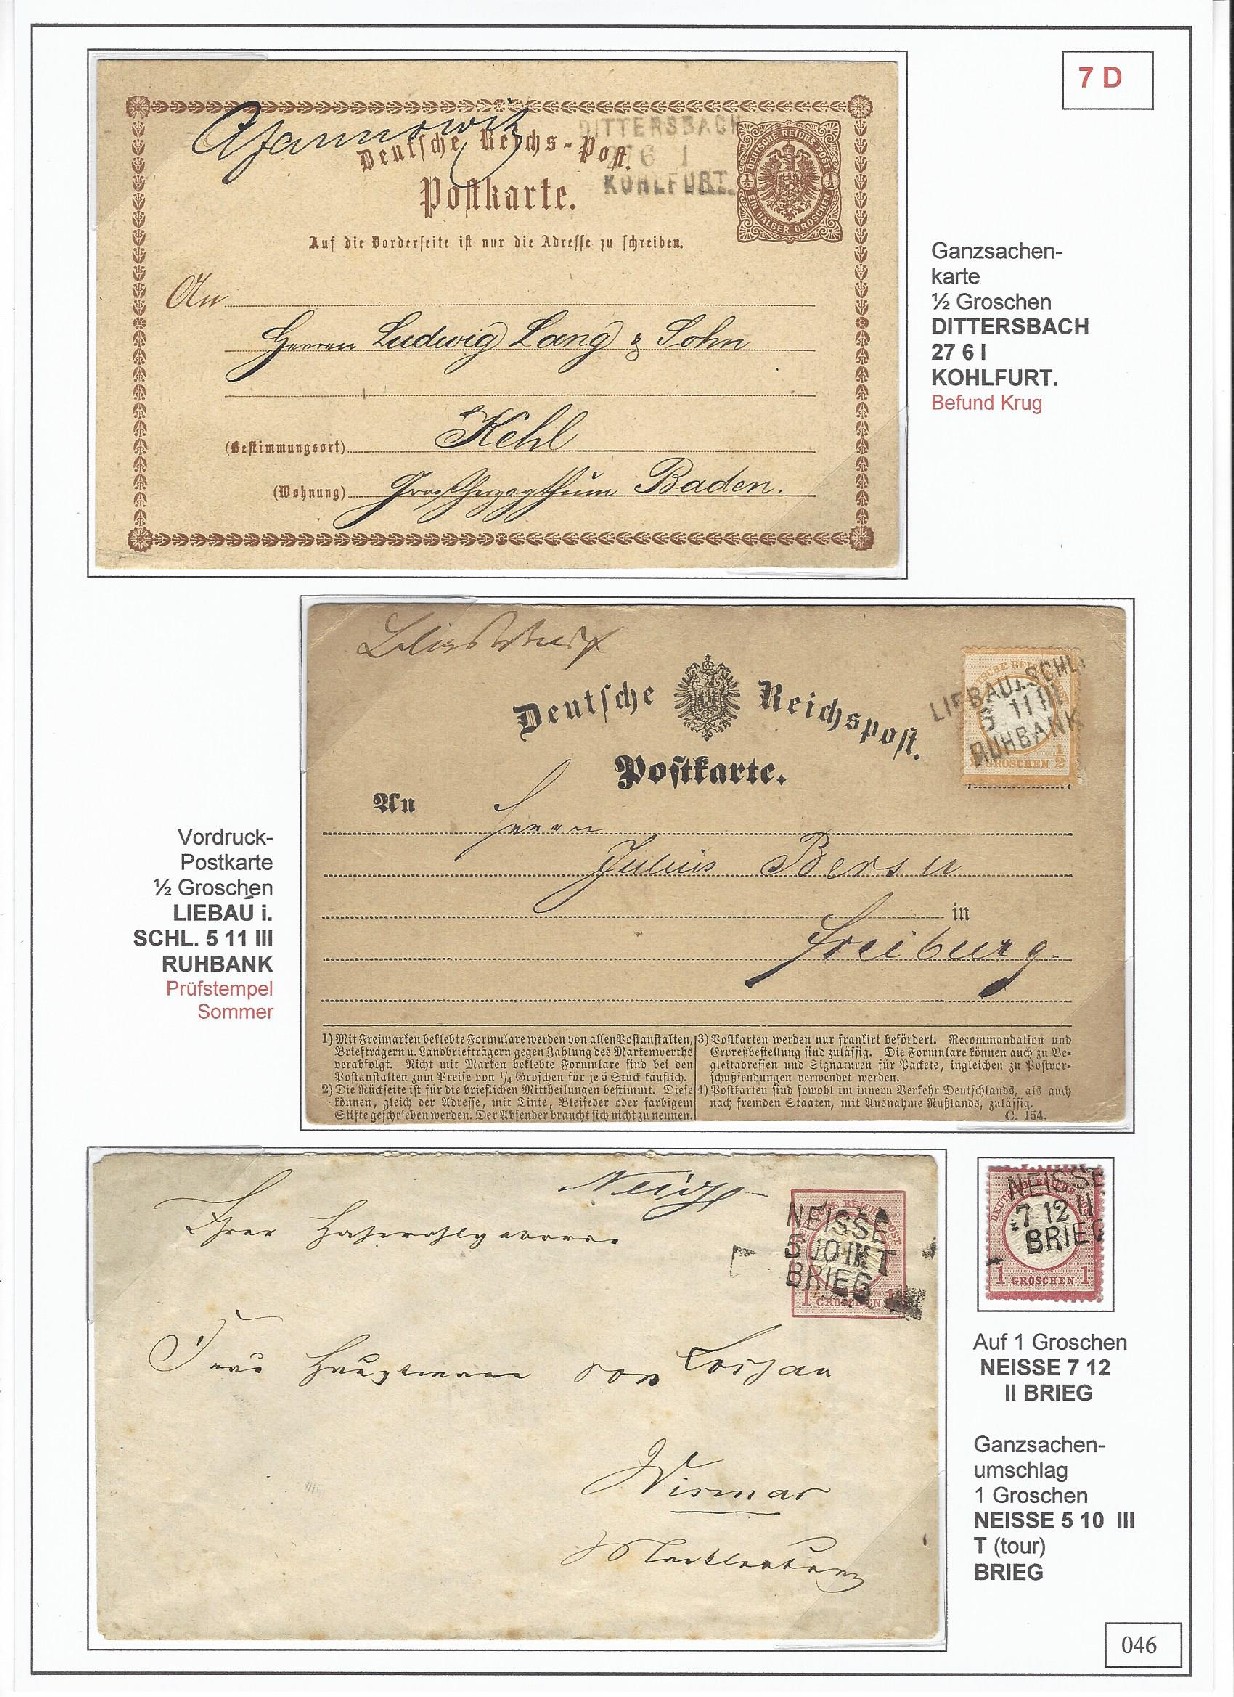 7 D
DITTERSBACH
27 6 I
KOHLFURT.
Deutsche Reichs-Post.
Postkarte.
Auf die Vorderseite ist nur die Adresse zu schreiben.
DEUTSCHE REICHS-POST
EIN HALBER GROSCHEN
An
Herren Ludwig Lang & Sohn
(Bestimmungsort) Kehl
(Wohnung) Großherzogthum Baden.
Ganzsachen-
karte
½ Groschen
DITTERSBACH
27 6 I
KOHLFURT.
Befund Krug
Deutsche Reichspost.
Postkarte.
LIEBAU i.SCHL.
5 11 III
RUHBANK
GROSCHEN ½
An
Herrn
Julius
in
Freiburg.
1) Mit Freimarken beklebte Formulare werden von allen Postanstalten,
Briefträgern u. Landbriefträgern gegen Zahlung des Markenwerths
verabfolgt. Nicht mit Marken beklebte Formulare sind bei den
Postanstalten zum Preise von ¼ Groschen für je 5 Stück käuflich.
2) Die Rückseite ist für die brieflichen Mittheilungen bestimmt. Diese
können, gleich der Adresse, mit Tinte, Bleifeder oder farbigem
Stifte geschrieben werden. Der Absender braucht sich nicht zu nennen.
3) Postkarten werden nur frankirt befördert. Recommandation und
Expreßbestellung sind zulässig. Die Formulare können auch zu Be-
gleitadressen und Signaturen für Packete, ingleichen zu Postvor-
schußsendungen verwendet werden.
4) Postkarten sind sowohl im innern Verkehr Deutschlands, als auch
nach fremden Staaten, mit Ausnahme Rußlands, zulässig.
C. 154.
Vordruck-
Postkarte
½ Groschen
LIEBAU i.
SCHL. 5 11 III
RUHBANK
Prüfstempel
Sommer
Neisse
NEISSE
5 10 III T
BRIEG
1 GROSCHEN
Frau Hauptmann von
Wismar
Mecklenburg
NEISSE
7 12 II
BRIEG
1 GROSCHEN 1
Auf 1 Groschen
NEISSE 7 12
II BRIEG
Ganzsachen-
umschlag
1 Groschen
NEISSE 5 10 III
T (tour)
BRIEG
046